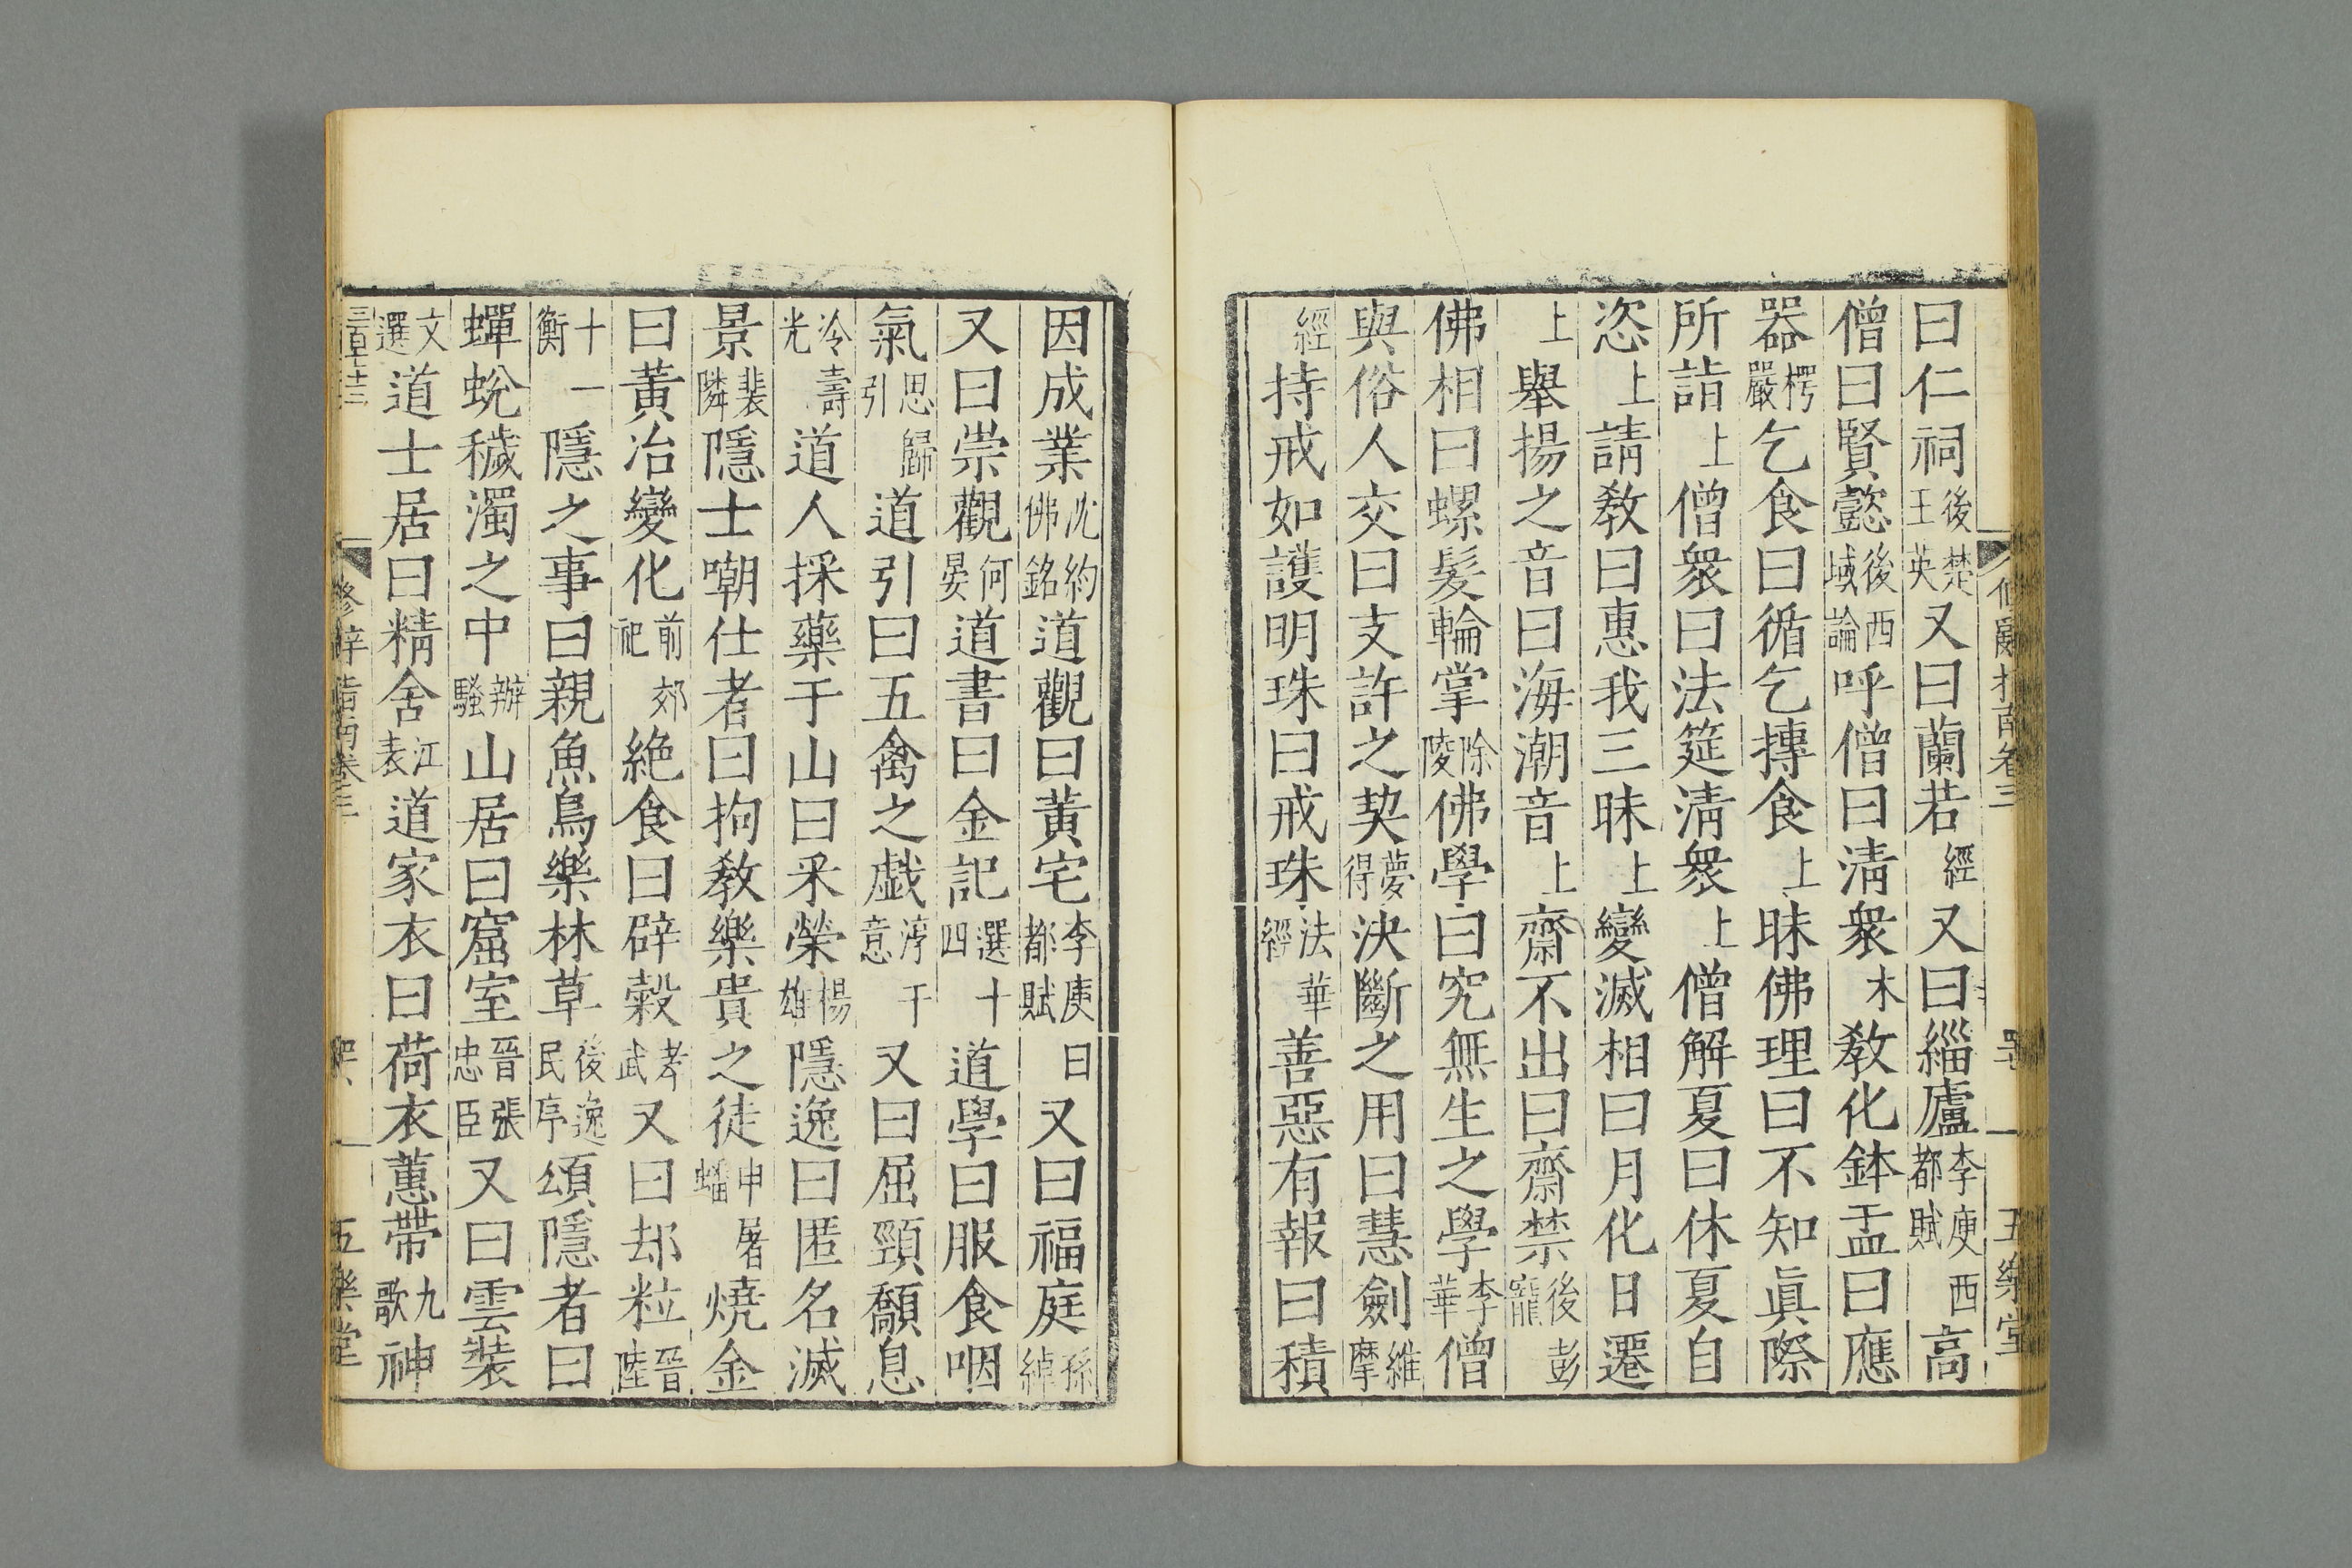 曰仁祠後楚王英又曰蘭若經又曰緇廬李庾西都賦高
僧曰賢懿後西域論呼僧曰淸衆木教化鉢盂曰應
器楞嚴乞食曰循乞摶食上昧佛理曰不知眞際
所詣上僧衆曰法筵淸衆上僧解夏曰休夏自
恣上請教曰惠我三昧上變滅相曰月化日遷
上舉揚之音曰海潮音上齋不出曰齋禁後彭寵
佛相曰螺髮輪掌除陵佛學曰究無生之學李華僧
與俗人交曰支許之契夢得決斷之用曰慧劍維摩
經持戒如護明珠曰戒珠法華經善惡有報曰積
因成業沈約佛銘道觀曰黃宅李庾都賦曰又曰福庭孫綽
又曰崇觀何晏道書曰金記選十四道學曰服食咽
氣思歸引道引曰五禽之戯淳于意又曰屈頸鷸息
冷壽光道人採藥于山曰采榮楊雄隱逸曰匿名滅
景裴隣隱士嘲仕者曰拘教樂貴之徒申屠蟠燒金
曰黃冶變化前郊祀絶食曰辟榖孝武又曰却粒晉陸
十一衡隱之事曰親魚鳥樂林草後逸民序頌隱者曰
蟬蛻穢濁之中辦騷山居曰窟室晉張忠臣又曰雲裝
文選道士居曰精舍江表道家衣曰荷衣蕙帶九歌神
修辭指南卷三
五樂堂